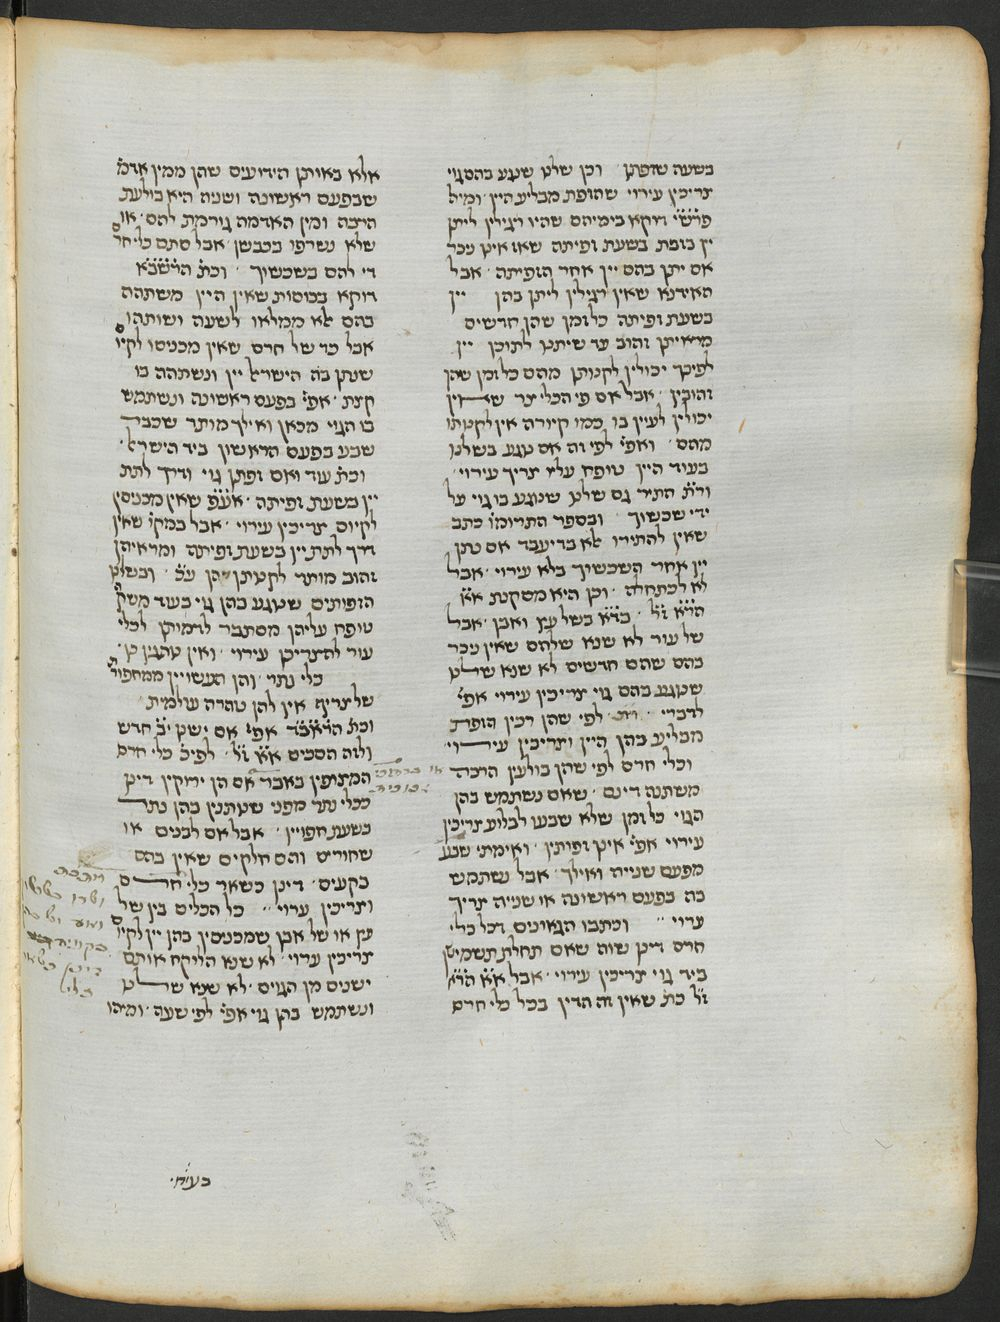 בשעה שזפתן וכן שלנו שנגע בהם גוי
צריכין עירוי שהזפת מבליע היין ומיהו
פרש״י דוקא בימיהם שהיו רגילין ליתן
יין בזפת בשעת זפיתה שאז אינו ניכר
אם יתן בהם יין אחר הזפיתה אבל
האידנא שאין רגילין ליתן בהן יין
בשעת זפיתה כל זמן שהן חדשים
מראיתן זהוב עד שיתנו לתוכן יין
לפיכך יכולין לקנותן מהם כל זמן שהן
זהובין אבל אם פי הכלי צר שאין
יכולין לעיין בו כמו קיורה אין לקנותו
מהם ואפי׳ לפי זה אם נגע בשלנו
בעוד היין טופח עליו צריך עירוי
ור״ת התיר גם שלנו שנגע בו גוי על
ידי שכשוך ובספר התרומו׳ כתב
שאין להתירו אלא בדיעבד אם נתן
יין אחר השכשוך בלא עירוי אבל
לא לכתחלה וכן היא מסקנת א״א
הרא״ש ז״ל בד״א בשל עץ ואבן אבל
של עור לא שנא שלהם שאין ניכר
בהם שהם חדשים לא שנא שלנו
שנגע בהם גוי צריכין עירוי אפי׳
לדברי ר״ת לפי שהן רכין הזפת
מבליע בהן היין וצריכין עירוי
וכלי חרס לפי שהן בולעין הרבה
משתנה דינם שאם נשתמש בהן
הגוי כל זמן שלא שבעו לבלוע צריכין
עירוי אפי׳ אינן זפותין ואימתי שבע
מפעם שנייה ואילך אבל נשתמש
בה בפעם ראשונה או שנייה צריך
ערוי וכתבו הגאונים דכל כלי
חרס דינן שוה שאם תחלת תשמישן
ביד גוי צריכין עירוי אבל א״א הרא״ש
ז״ל כת׳ שאין זה הדין בכל כלי חרס
אלא באותן הידועים שהן ממין אדמה
שבפעם ראשונה ושניה היא בולעת
הרבה ומין האדמה גורמת להם או
שלא נשרפו בכבשן אבל סתם כלי חרס
די להם בשכשוך וכת׳ הרשב״א
דוקא בכוסות שאין היין משתהה
בהם אלא ממלאו לשעה ושותהו
אבל כד של חרס שאין מכניסו לקיום
שנתן בה הישראל יין ונשתהה בו
קצת אפי׳ בפעם ראשונה ונשתמש
בו הגוי מכאן ואילך מותר שכבר
שבע בפעם הראשון ביד הישראל
וכת׳ עוד ואם זפתן גוי ודרך לתת
יין בשעת זפיתה אע״פ שאין מכניסין
לקיום צריכין עירוי אבל במקו׳ שאין
דרך לתת יין בשעת זפיתה ומראיהן
זהוב מותר לקנותן הן ובשלנו
הזפותים שנגע בהן גוי בעוד משקה
טופח עליהן מסתבר לדמותן לכלי
עור להצריכן עירוי ואין נוהגין כן
כלי נתר והן העשויין ממחפורת
של צריף אין להן טהרה עולמית
וכת׳ הראב״ד אפי׳ אם ישנן י״ב חדש
ולזה הסכים א״א ז״ל לפיכ׳ כלי חרס
המצופין באבר אם הן ירוקין דינן
ככלי נתר מפני שנותנין בהן נתר
בשעת חפויין אבל אם לבנים או
שחורים והם חלקים שאין בהם
בקעים דינן כשאר כלי חרס
וצריכין ערוי כל הכלים בין של
עץ או של אבן שמכניסין בהן יין לקיום
צריכין ערוי לא שנא הליקח אותם
ישנים מן הגוים לא שנא שלנו
ונשתמש בהן גוי אפי׳ לפי שעה ומיהו
בעי״ח